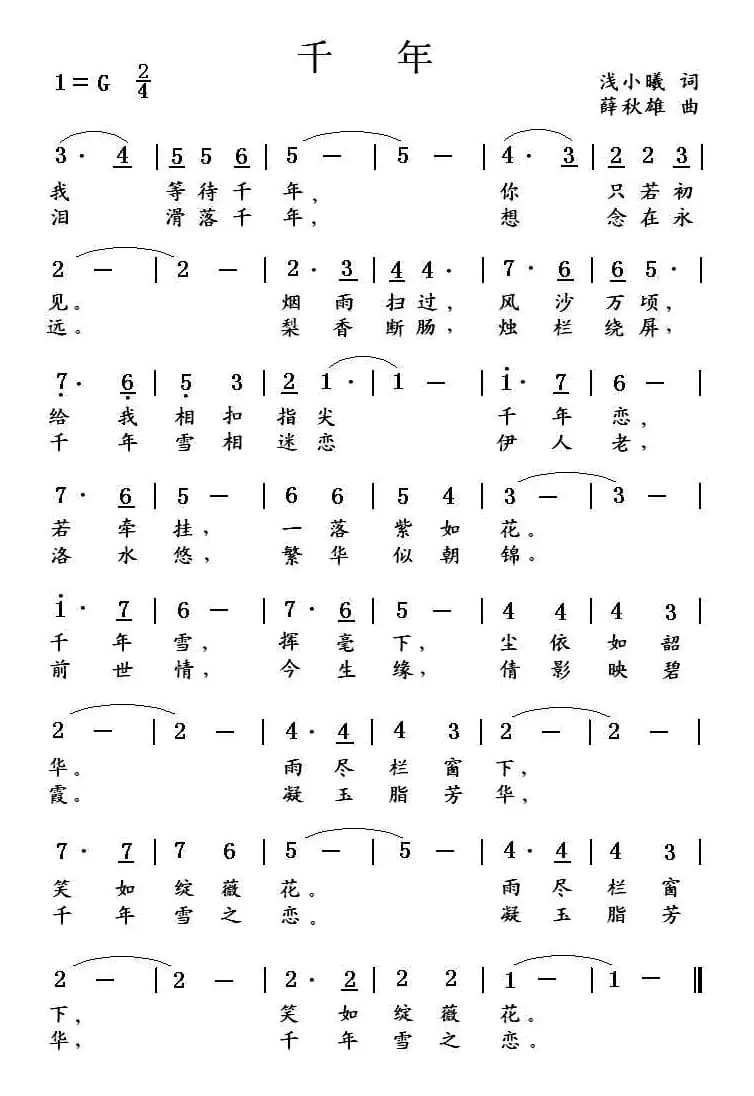 千 年
1=G 2/4
浅小曦 词
薛秋雄 曲
3· 4 | 5 5 6 | 5 － | 5 － | 4· 3 | 2 2 3 |
我 等待千 年， 你 只若初
泪 滑落千 年， 想 念在永
2 － | 2 － | 2· 3 | 4 4· | 7· 6 | 6 5· |
见。 烟 雨 扫 过， 风 沙 万 顷，
远。 梨 香 断 肠， 烛 栏 绕 屏，
7· 6 | 5 3 | 2 1· | 1 － | 1· 7 | 6 － |
给 我 相 扣 指 尖 千 年 恋，
千 年 雪 相 迷 恋 伊 人 老，
7· 6 | 5 － | 6 6 | 5 4 | 3 － | 3 － |
若 牵 挂， 一 落 紫 如 花。
洛 水 悠， 繁 华 似 朝 锦。
1· 7 | 6 － | 7· 6 | 5 － | 4 4 | 4 3 |
千 年 雪， 挥 毫 下， 尘 依 如 韶
前 世 情， 今 生 缘， 倩 影 映 碧
2 － | 2 － | 4· 4 | 4 3 | 2 － | 2 － |
华。 雨 尽 栏 窗 下，
霞。 凝 玉 脂 芳 华，
7· 7 | 7 6 | 5 － | 5 － | 4· 4 | 4 3 |
笑 如 绽 薇 花。 雨 尽 栏 窗
千 年 雪 之 恋。 凝 玉 脂 芳
2 － | 2 － | 2· 2 | 2 2 | 1 － | 1 － ‖
下， 笑 如 绽 薇 花。
华， 千 年 雪 之 恋。